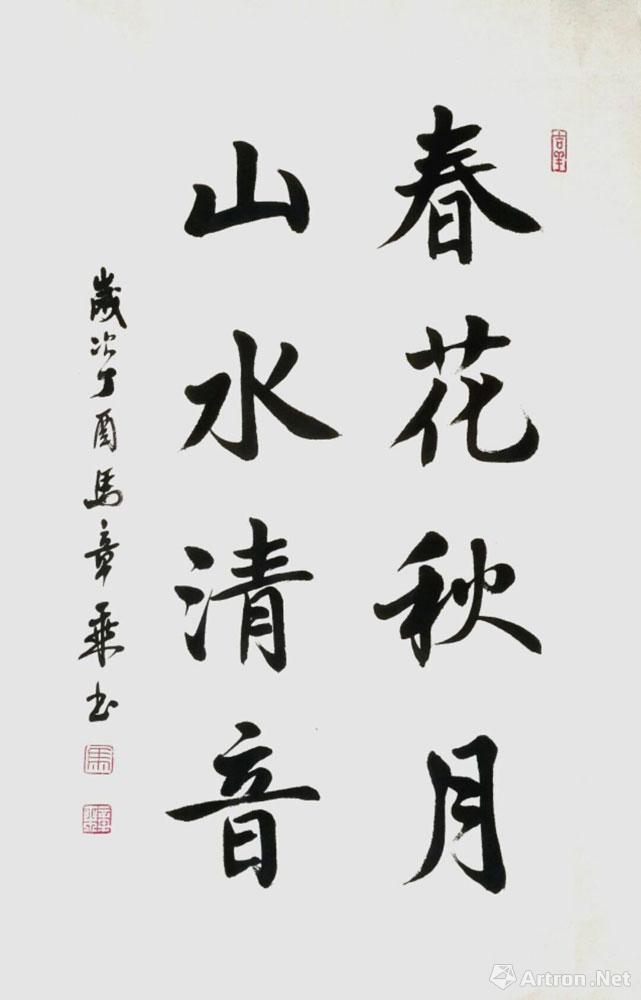 春花秋月
山水清音
歲次丁酉馬章乘书
Artron.Net